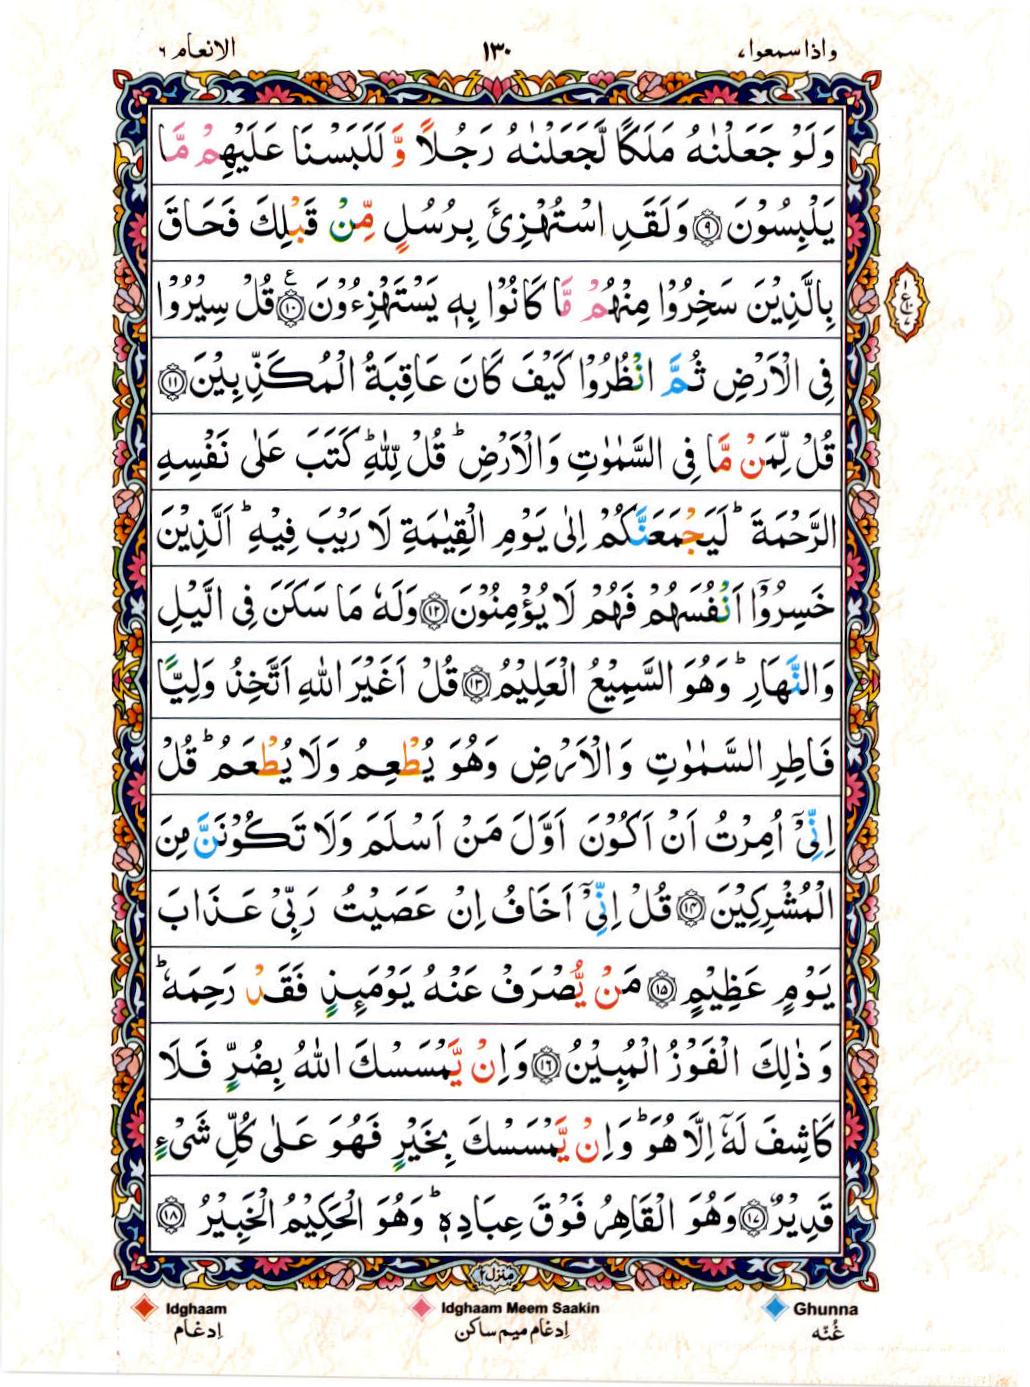 واذا سمعوا ٧ ١٣٠ الانعام ٦
وَلَوْ جَعَلْنٰهُ مَلَكًا لَّجَعَلْنٰهُ رَجُلًا وَّ لَلَبَسْنَا عَلَيْهِمْ مَّا
يَلْبِسُوْنَ ﴿۹﴾ وَلَقَدِ اسْتُهْزِئَ بِرُسُلٍ مِّنْ قَبْلِكَ فَحَاقَ
بِالَّذِيْنَ سَخِرُوْا مِنْهُمْ مَّا كَانُوْا بِهٖ يَسْتَهْزِءُوْنَ ﴿۱۰﴾ ع قُلْ سِيْرُوْا
فِى الْاَرْضِ ثُمَّ انْظُرُوْا كَيْفَ كَانَ عَاقِبَةُ الْمُكَذِّبِيْنَ ﴿۱۱﴾
قُلْ لِّمَنْ مَّا فِى السَّمٰوٰتِ وَالْاَرْضِ ؕ قُلْ لِّلّٰهِ ؕ كَتَبَ عَلٰى نَفْسِهِ
الرَّحْمَةَ ؕ لَيَجْمَعَنَّكُمْ اِلٰى يَوْمِ الْقِيٰمَةِ لَا رَيْبَ فِيْهِ ؕ اَلَّذِيْنَ
خَسِرُوْۤا اَنْفُسَهُمْ فَهُمْ لَا يُؤْمِنُوْنَ ﴿۱۲﴾ وَلَهٗ مَا سَكَنَ فِى الَّيْلِ
وَالنَّهَارِ ؕ وَهُوَ السَّمِيْعُ الْعَلِيْمُ ﴿۱۳﴾ قُلْ اَغَيْرَ اللّٰهِ اَتَّخِذُ وَلِيًّا
فَاطِرِ السَّمٰوٰتِ وَالْاَرْضِ وَهُوَ يُطْعِمُ وَلَا يُطْعَمُ ؕ قُلْ
اِنِّىْۤ اُمِرْتُ اَنْ اَكُوْنَ اَوَّلَ مَنْ اَسْلَمَ وَلَا تَكُوْنَنَّ مِنَ
الْمُشْرِكِيْنَ ﴿۱۴﴾ قُلْ اِنِّىْۤ اَخَافُ اِنْ عَصَيْتُ رَبِّىْ عَذَابَ
يَوْمٍ عَظِيْمٍ ﴿۱۵﴾ مَنْ يُّصْرَفْ عَنْهُ يَوْمَئِذٍ فَقَدْ رَحِمَهٗ ؕ
وَذٰلِكَ الْفَوْزُ الْمُبِيْنُ ﴿۱۶﴾ وَاِنْ يَّمْسَسْكَ اللّٰهُ بِضُرٍّ فَلَا
كَاشِفَ لَهٗۤ اِلَّا هُوَ ؕ وَاِنْ يَّمْسَسْكَ بِخَيْرٍ فَهُوَ عَلٰى كُلِّ شَىْءٍ
قَدِيْرٌ ﴿۱۷﴾ وَهُوَ الْقَاهِرُ فَوْقَ عِبَادِهٖ ؕ وَهُوَ الْحَكِيْمُ الْخَبِيْرُ ﴿۱۸﴾
منزل ٢
Idghaam Idghaam Meem Saakin Ghunna
اِدغام اِدغام میم ساکن غُنّہ